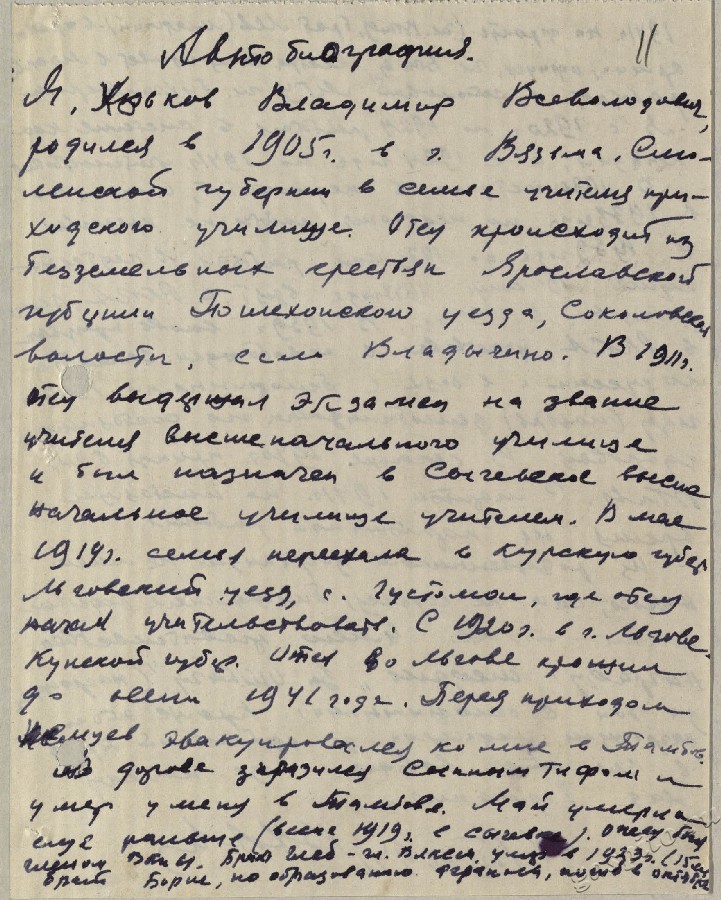 11
Автобиография.
Я, Хрьков Владимир Всеволодович,
родился в 1905г. в г. Вязьма, Смо-
ленской губернии в семье учителя при-
ходского училища. Отец происходит из
безземельных крестьян Ярославской
губернии Пошехонского уезда, Соколовской
волости, село Владычино. В 1911г.
отец выдержал экзамен на звание
учителя высшеначального училища
и был назначен в Сычевское высше
начальное училище учителем. В мае
1919г. семья переехала в Курскую губер
Льговский уезд, с. Густомои, где отец
начал учительствовать. С 1920г. в г. Льгове-
Курской губер. Отец во Льгове прожил
до осени 1941 года. Перед приходом
немцев эвакуировался ко мне в Тамбов.
по дороге заразился сыпным тифом и
умер у меня в Тамбове. Мать умерла
еще раньше (весна 1919г. в Сычевке). Отец был
членом ВКП(б). Брат Глеб - чл. ВЛКСМ, умер в 1923г. (15 лет
брат Борис, по образованию погиб в октябре